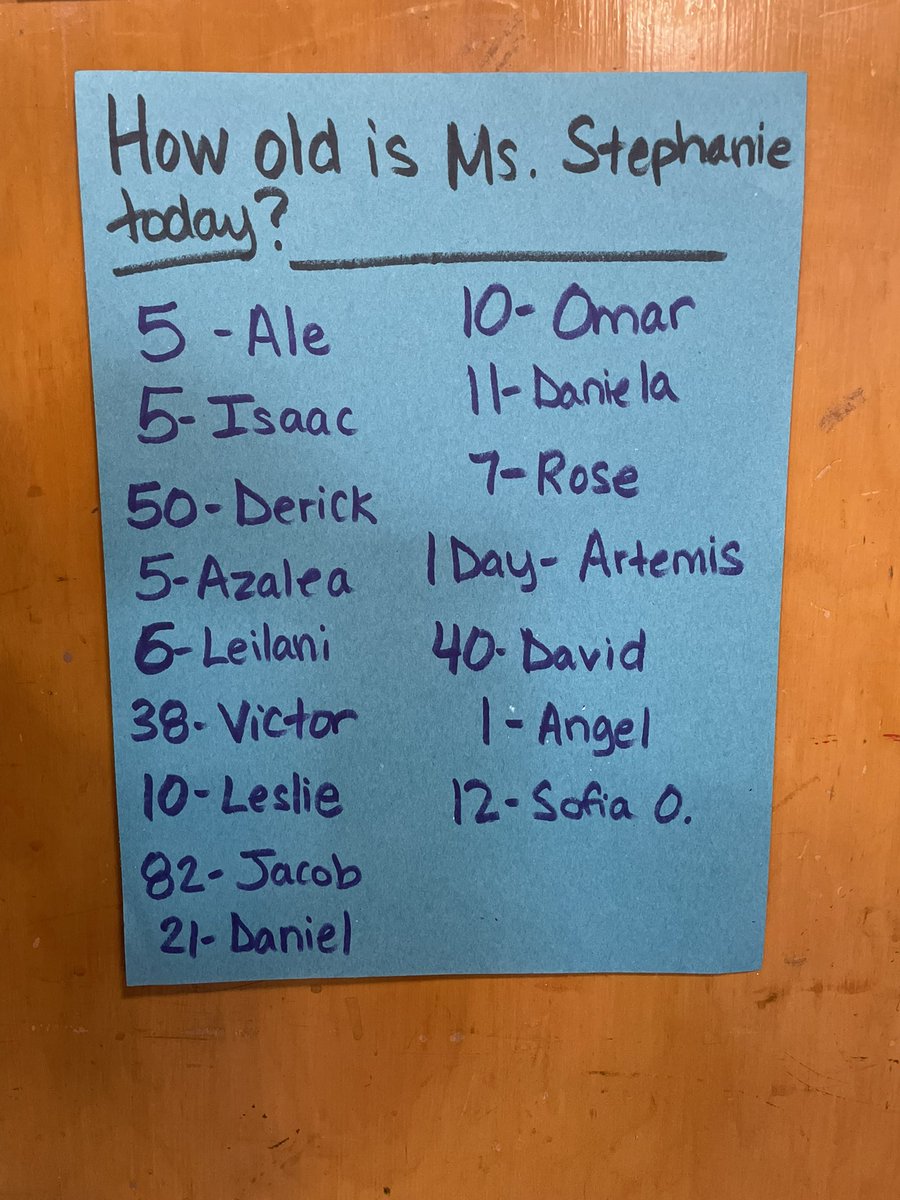 How old is Ms. Stephanie
today?
5 - Ale
5- Isaac
50- Derick
5- Azalea
6- Leilani
38- Victor
10- Leslie
82- Jacob
21- Daniel
10- Omar
11- Daniela
7- Rose
1 Day- Artemis
40- David
1 - Angel
12- Sofia O.